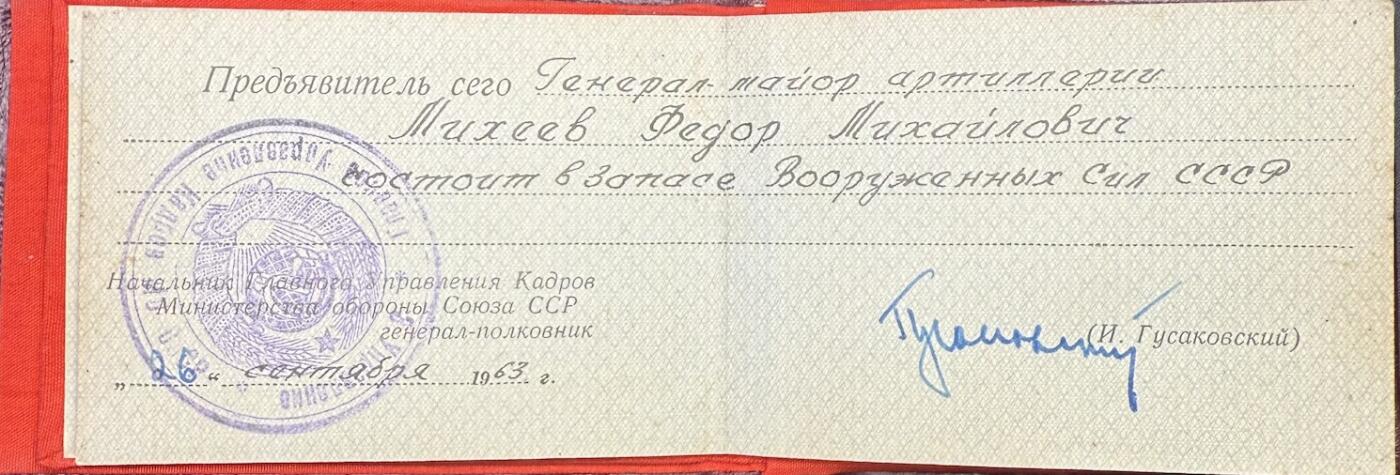 Предъявитель сего Генерал-майор артиллерии
Михеев Федор Михайлович
состоит в запасе Вооруженных Сил СССР
Начальник Главного Управления Кадров
Министерства обороны Союза ССР
генерал-полковник
(И. Гусаковский)
„26“ сентября 1963 г.
Главное Управление Кадров